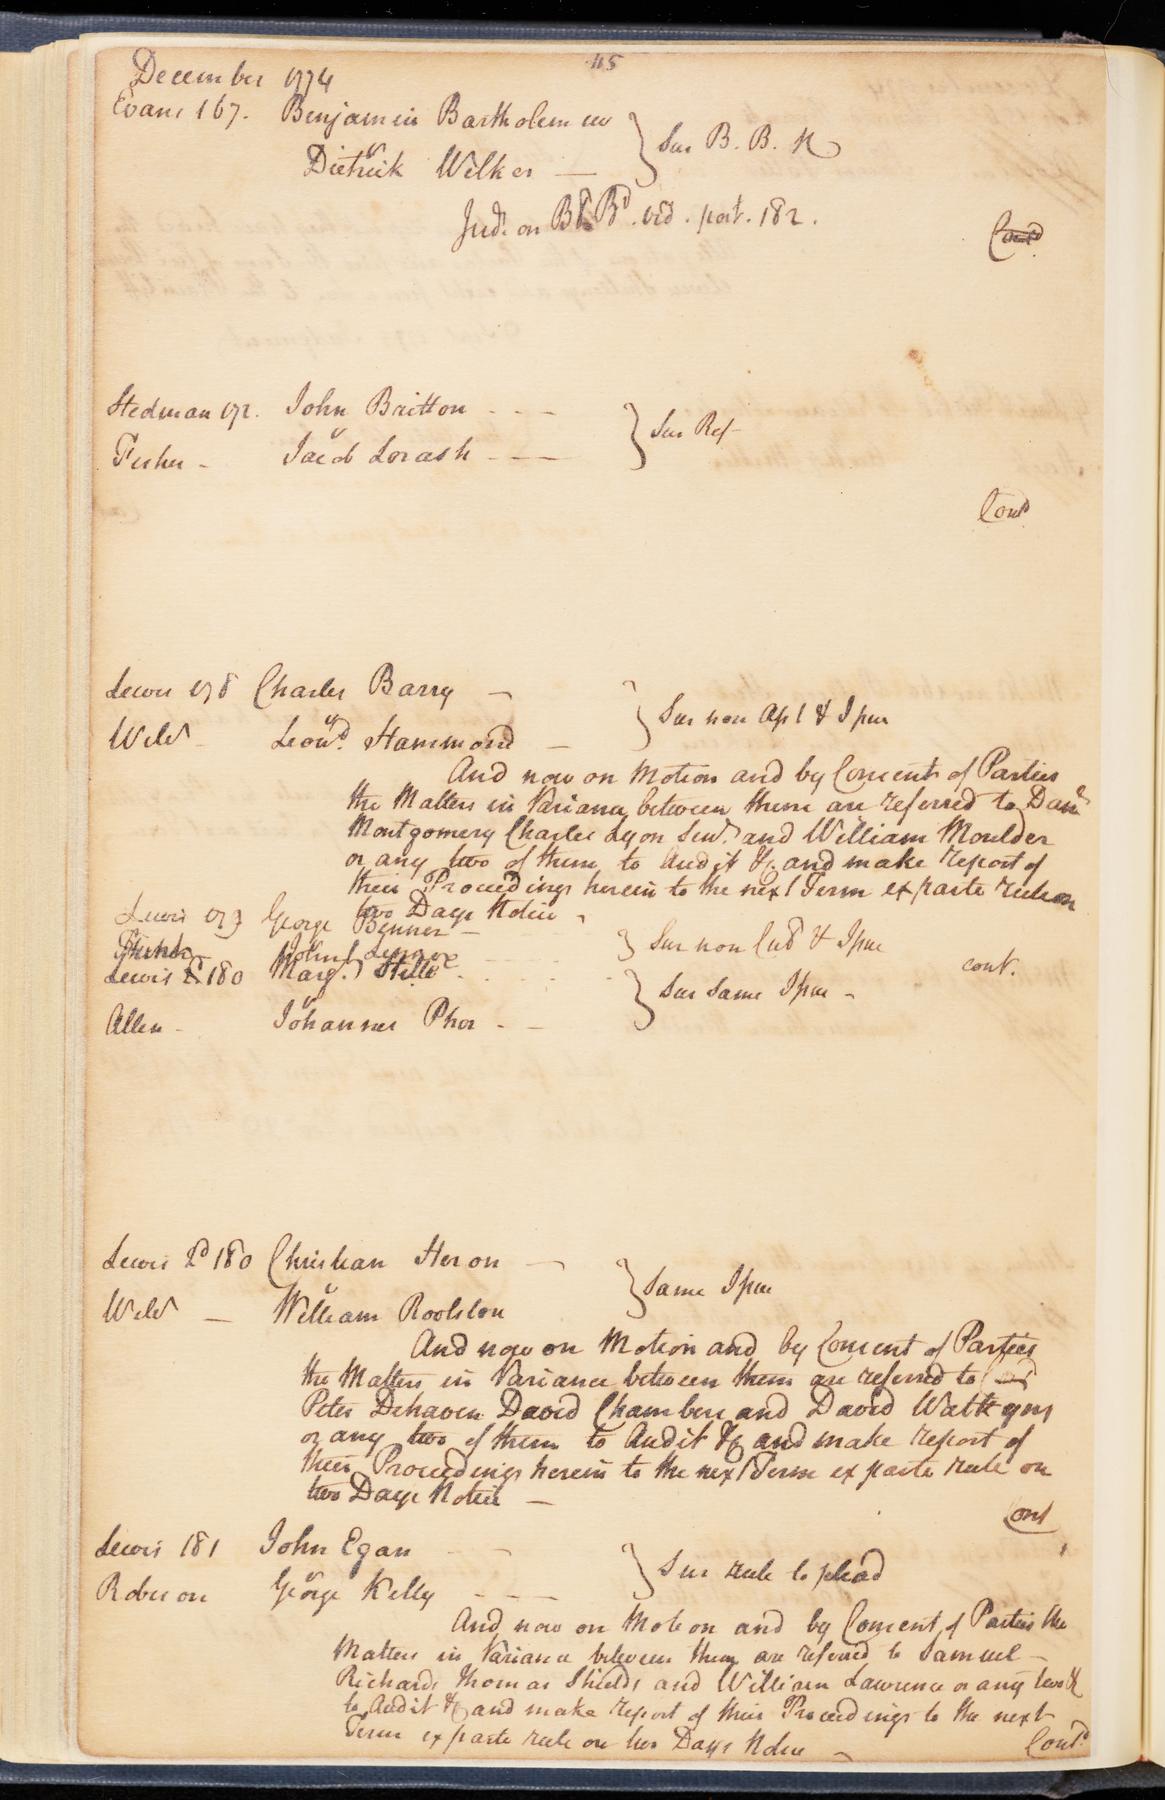 115
December 1774
Evans 167. Benjamin Bartholomew } Sur B. B. N
v
Dietrick Wilker —
Judt. on Bl Bd. vid. post. 182.
Contd
Stedman 172. John Britton - - — } Sur Ref
v
Fisher - Jacob Lorash - - —
Contd
Lewis 178 Charles Barry — } Sur non Apl & Ipm
v
Wilcs Leond. Hammond —
And now on Motion and by Consent of Parties
the Matters in Variance between them are referred to Danl
Montgomery Charles Lyon Senr. and William Moulder
or any two of them to Audit &c and make report of
their Proceedings herein to the next Term ex parte rule on
two Days Notice -
Lewis 179 George Benner — } Sur non Cul & Ipm
John
cont.
Lewis 2d 180 Margt. Stille - - - } Sur Same Ipm -
v
Allen - Johannes Phor - -
Lewis 2d 180 Christian Heron — } Same Ipm
v
Wilcs — William Roolston
And now on Motion and by Consent of Parties
the Matters in Variance between them are referred to
Peter Dehaven David Chambers and David Watkyns
or any two of them to Audit &c and make report of
their Proceedings herein to the next Term ex parte rule on
two Days Notice —
Cont
Lewis 181 John Egan - — } Sur rule to plead
v
Roberson George Kelly - - —
And now on Motion and by Consent of Parties the
Matters in Variance between them are referred to Samuel —
Richards Thomas Shields and William Lawrence or any two &c
to Audit &c and make report of their Proceedings to the next
Term ex parte rule on two Days Notice —
Contd.